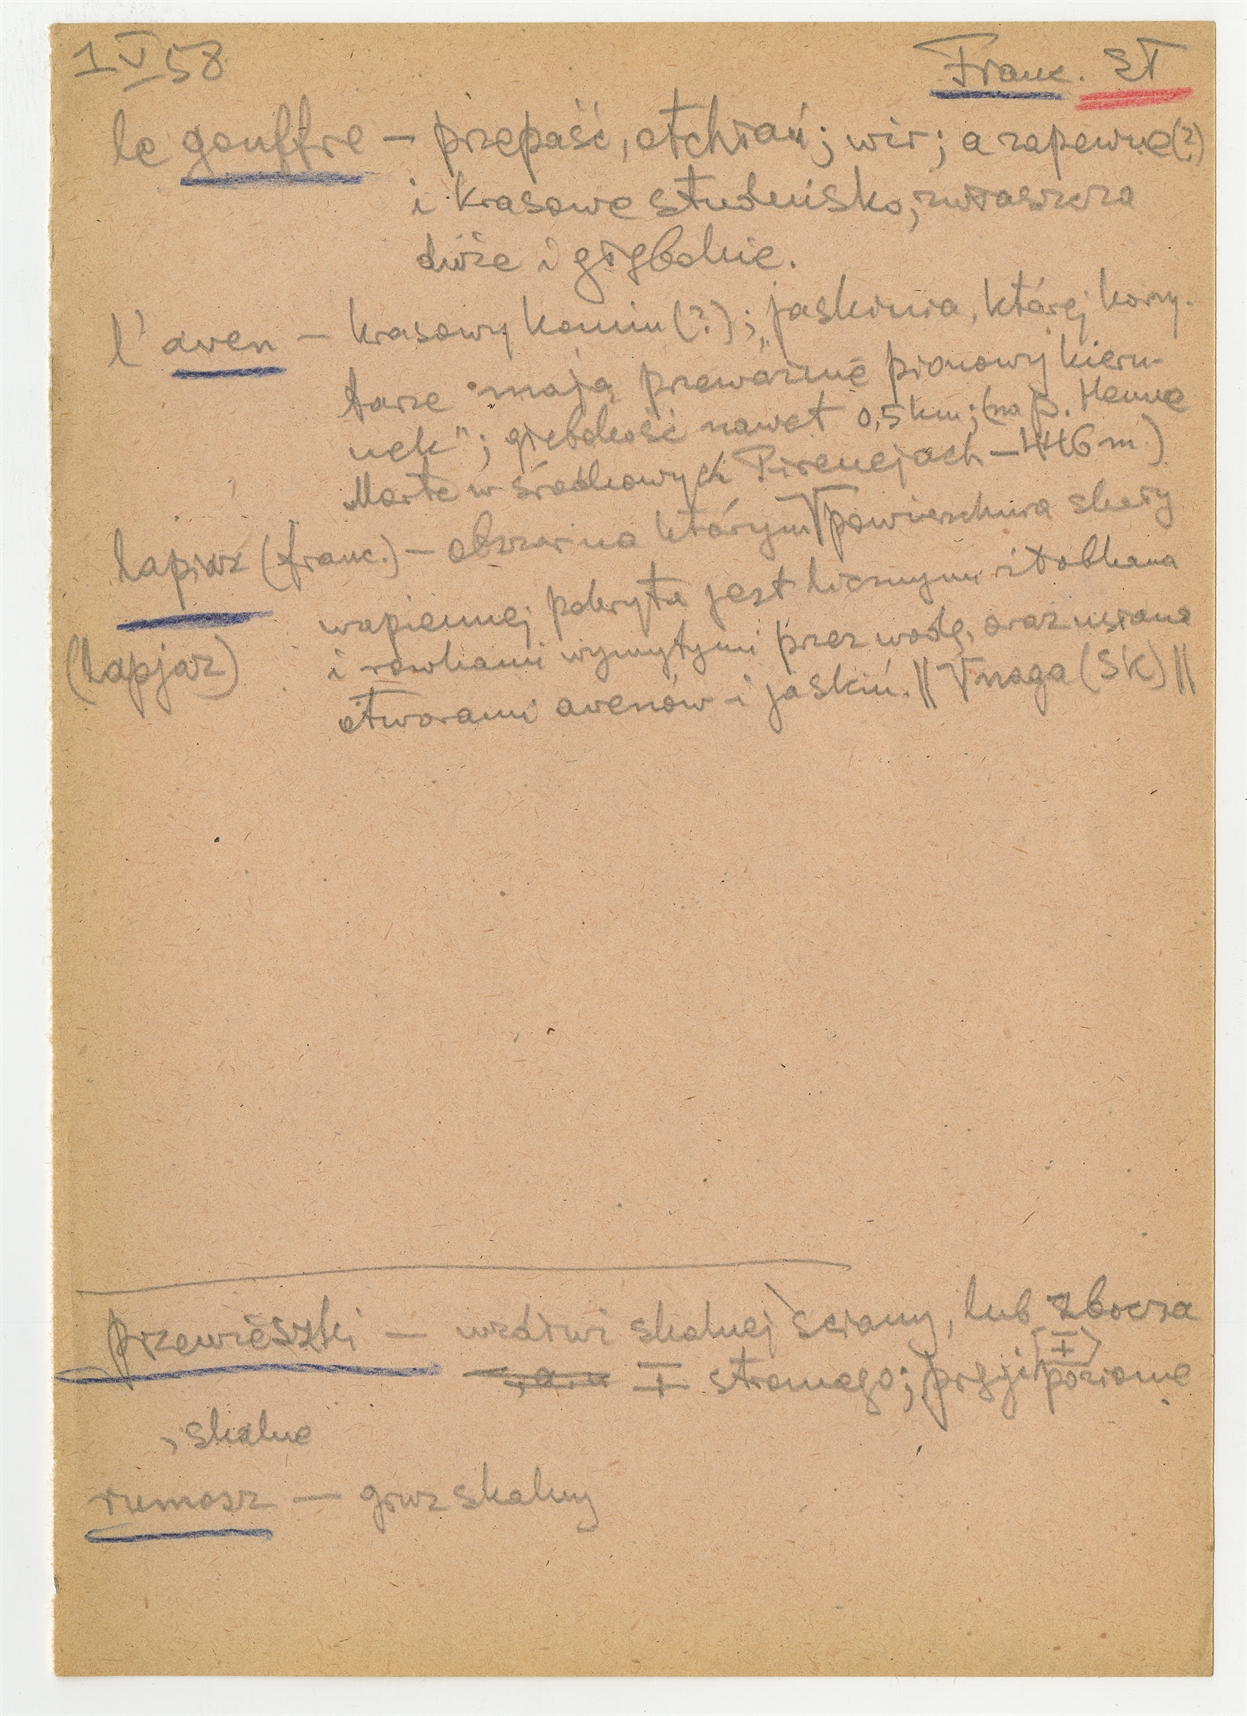 1 V 58
Franc. ST
le gouffre – przepaść, otchłań; wir; a zapewne(?)
i krasowe studnisko, zwłaszcza
duże i głębokie.
l'aven – krasowy komin(?); „jaskinia, której kory-
tarze mają przeważnie pionowy kieru-
nek"; głębokość nawet 0,5 km; (na p. Henne
Morte w środkowych Pirenejach – 446 m)
lapiaz (franc.) – obszar na którym powierzchnia skały
wapiennej pokryta jest licznymi żłobkami
(lapjaz)
i rowkami wymytymi przez wodę, oraz usiana
otworami avenów i jaskiń. || naga (SK) ||
przewieszki – wzdłuż skalnej ściany, lub zbocza
± stromego; poziome
(±)
, skalne
rumosz – gruz skalny